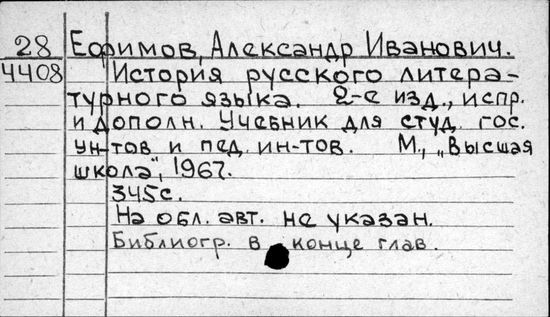 28 Ефимов, Александр Иванович.
4408 История русского литера-
турного языка. 2-е изд., испр.
и дополн. Учебник для студ. гос.
ун-тов и пед. ин-тов. М., „Высшая
школа", 1967.
345с.
На обл. авт. не указан.
Библиогр. в конце глав.